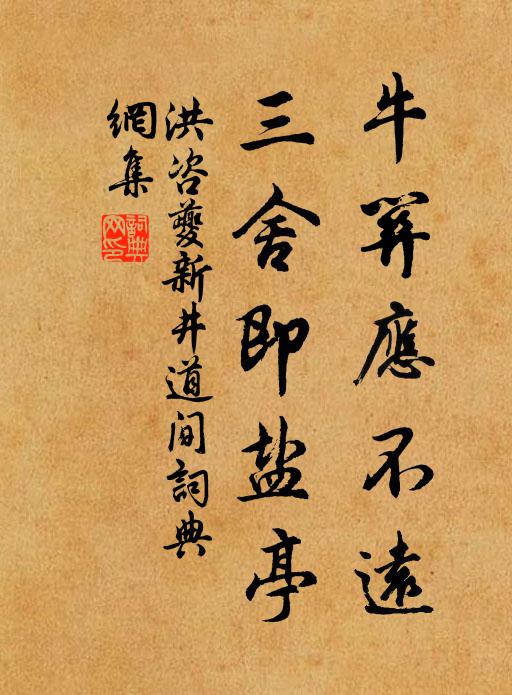 牛笄應不遠
三舍即盐亭
洪咨夔新井道间詞典
網集
詞典
网印